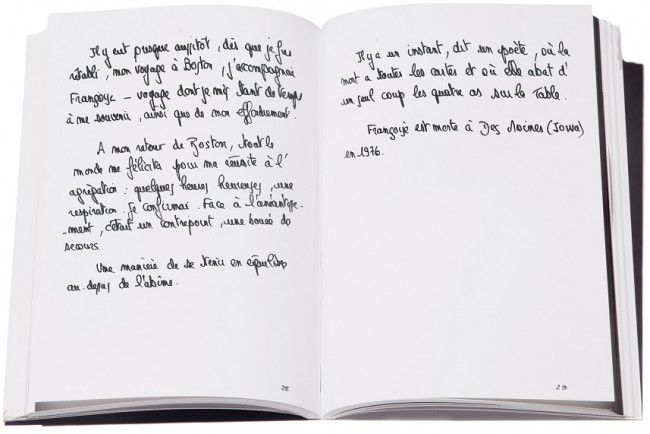 Il y eut presque aussitôt, dès que je fus
rétabli, mon voyage à Boston, j'accompagnai
Françoyse – voyage dont je mis tant de temps
à me souvenir, ainsi que de mon effondrement.
A mon retour de Boston, tout le
monde me félicita pour ma réussite à l'
agrégation : quelques heures heureuses, une
respiration. Je confirmai. Face à l'anéantisse-
-ment, c'était un contrepoint, une bouée de
secours.
Une manière de se tenir en équilibre
au-dessus de l'abîme.
28
Il y a un instant, dit un poète, où la
mort a toutes les cartes et où elle abat d'
un seul coup les quatre as sur la table.
Françoyse est morte à Des Moines (Iowa)
en 1976.
29